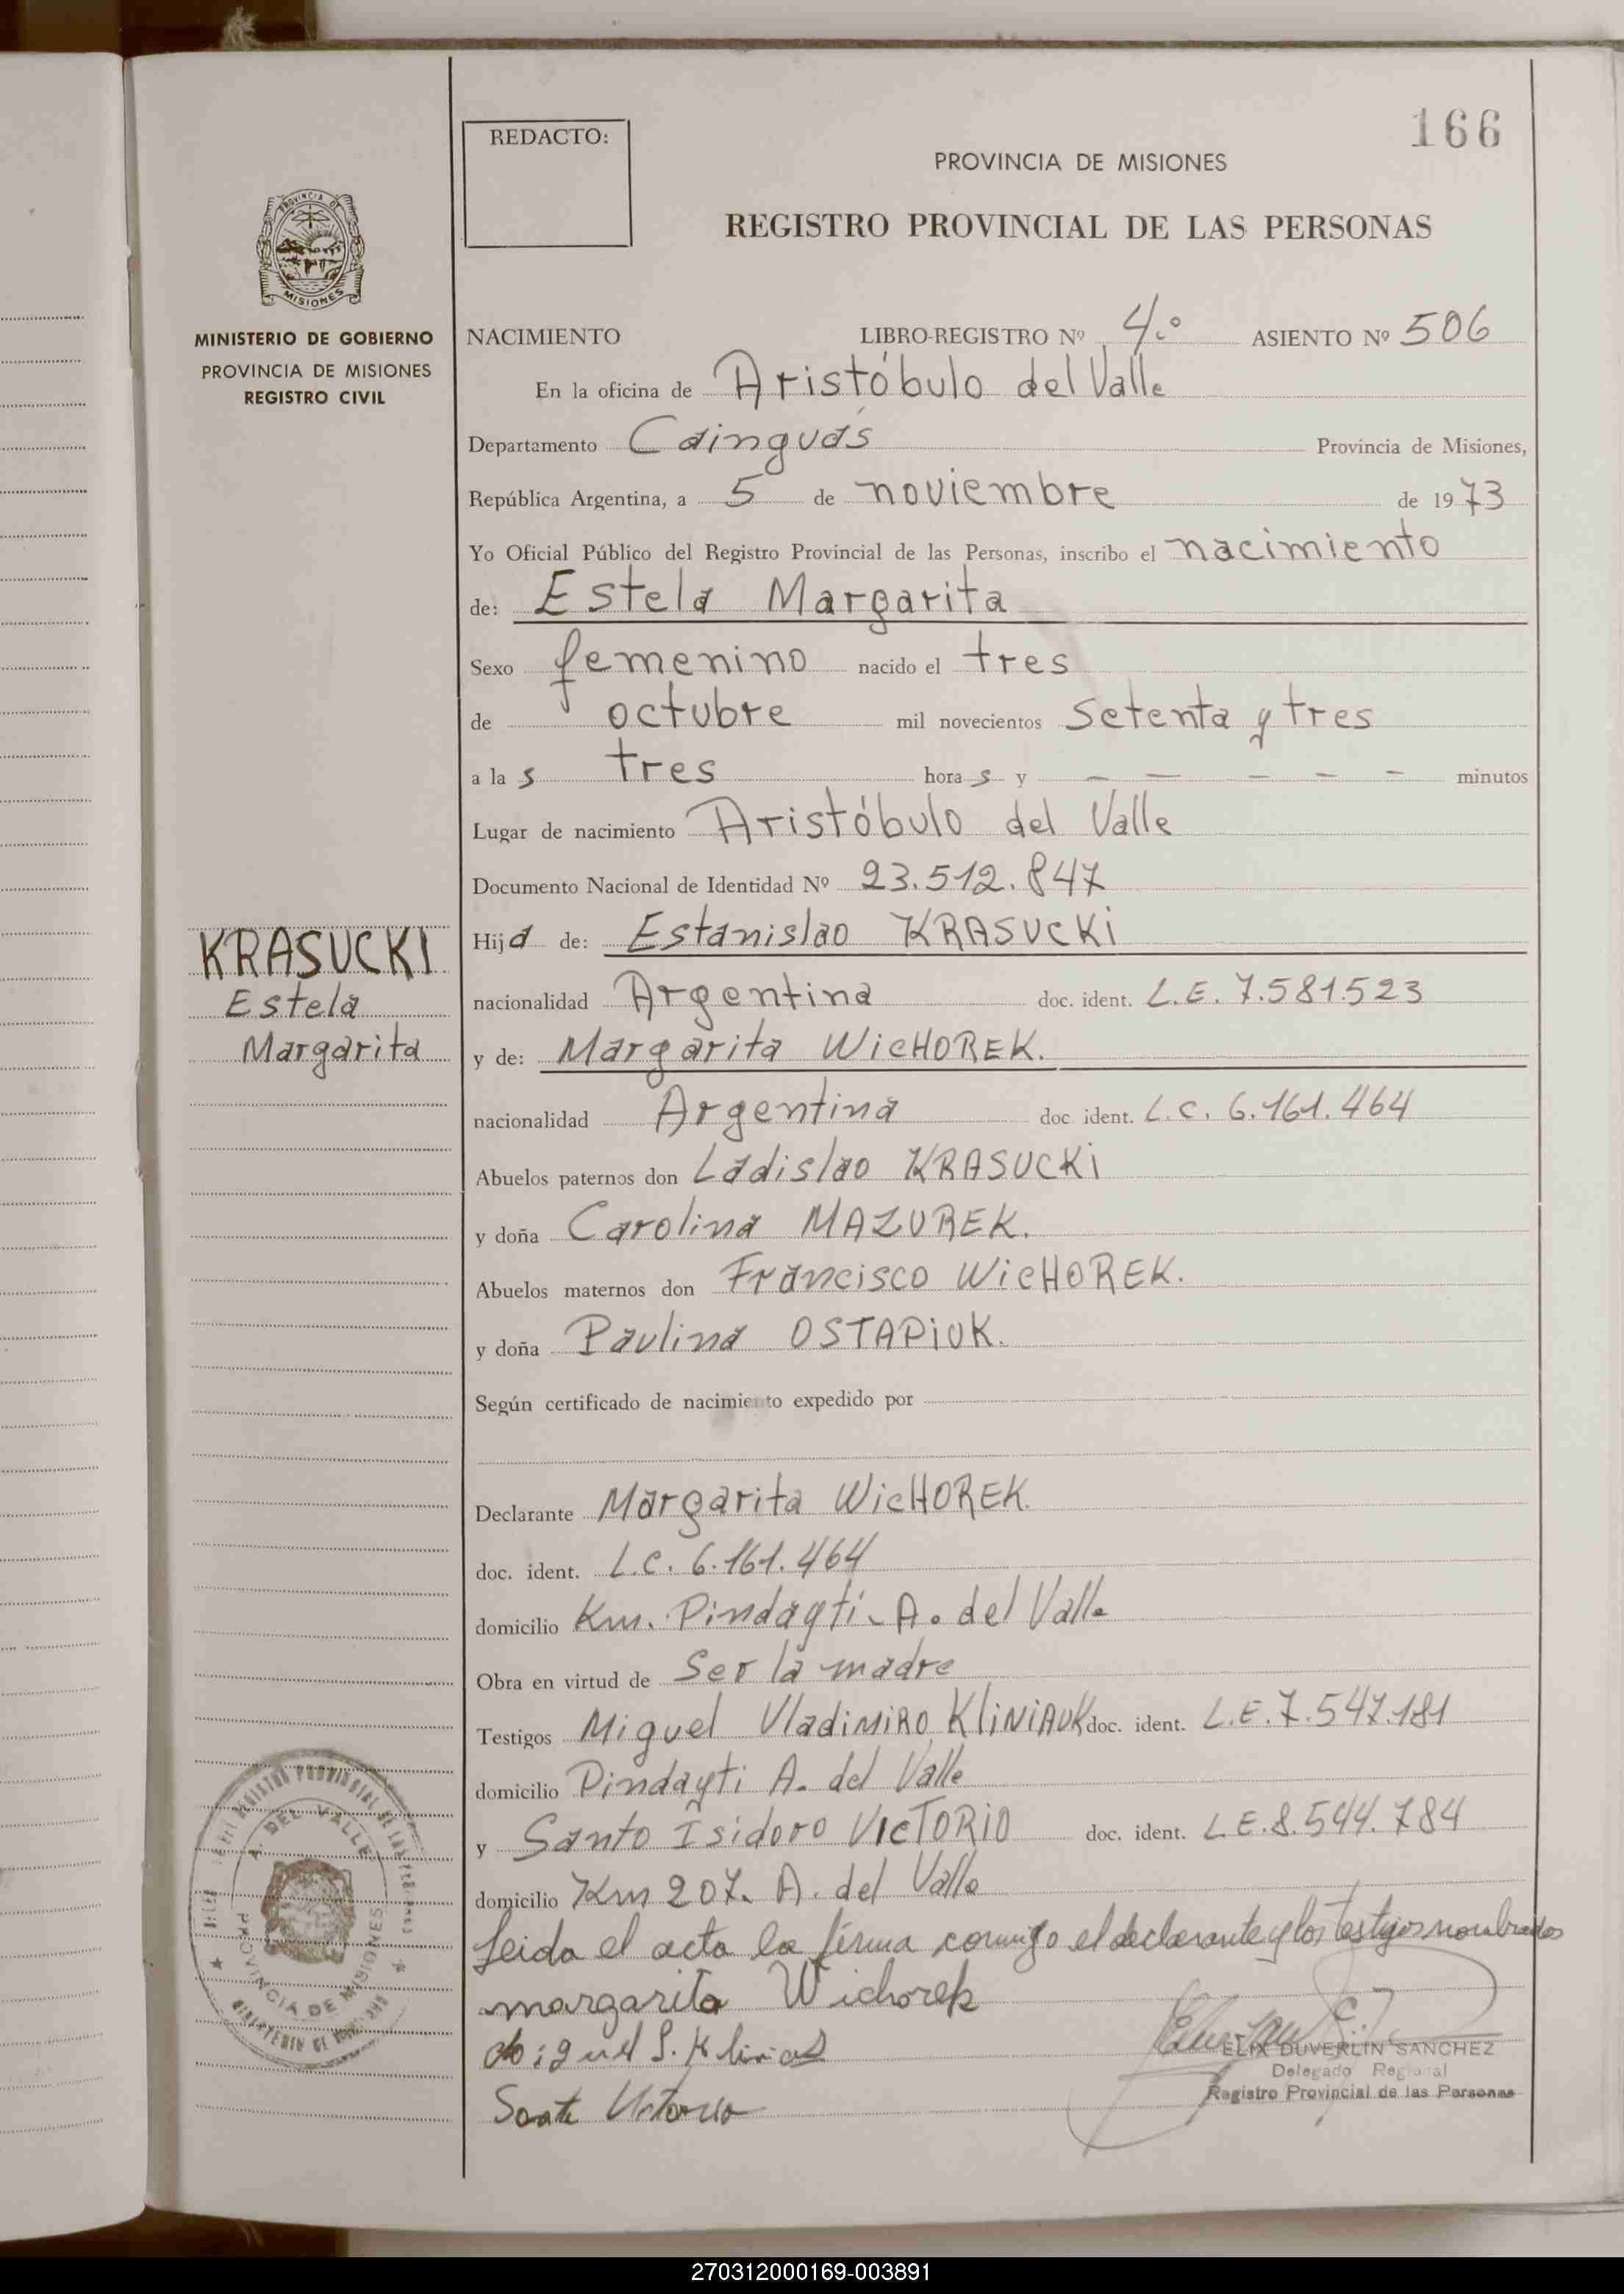 166
REDACTO:
PROVINCIA DE MISIONES
REGISTRO PROVINCIAL DE LAS PERSONAS
PROVINCIA DE
MISIONES
MINISTERIO DE GOBIERNO
PROVINCIA DE MISIONES
REGISTRO CIVIL
NACIMIENTO LIBRO-REGISTRO Nº 4.º ASIENTO Nº 506
En la oficina de Aristóbulo del Valle
Departamento Cainguás Provincia de Misiones,
República Argentina, a 5 de noviembre de 1973
Yo Oficial Público del Registro Provincial de las Personas, inscribo el nacimiento
de: Estela Margarita
Sexo femenino nacido el tres
de octubre mil novecientos setenta y tres
a la s tres hora s y — — — — — minutos
Lugar de nacimiento Aristóbulo del Valle
Documento Nacional de Identidad Nº 23.512.847
Hija de: Estanislao KRASUCKi
nacionalidad Argentina doc. ident. L.E. 7.581.523
y de: Margarita WicHOREK.
nacionalidad Argentina doc ident. L.C. 6.161.464
Abuelos paternos don Ladislao KRASUCKi
y doña Carolina MAZUREK.
Abuelos maternos don Francisco WicHOREK.
y doña Paulina OSTAPiUK.
Según certificado de nacimiento expedido por
Declarante Margarita WicHOREK.
doc. ident. L.C. 6.161.464
domicilio Km. Pindayti - A. del Valle
Obra en virtud de Ser la madre
Testigos Miguel VladiMiRO KliNiAUK doc. ident. L.E. 7.547.181
domicilio Pindayti A. del Valle
y Santo Isidoro VIcTORiO doc. ident. L.E. 8.544.784
domicilio Km 207. A. del Valle
Leida el acta la firma conmigo el declarante y los testigos nombrados
margarita Wichorek
KRASUCKI
Estela
Margarita
REGISTRO PROVINCIAL DE LAS PERSONAS
A. DEL VALLE
PROVINCIA DE MISIONES
ELIX DUVERLIN SANCHEZ
Delegado Regional
Registro Provincial de las Personas
270312000169-003891